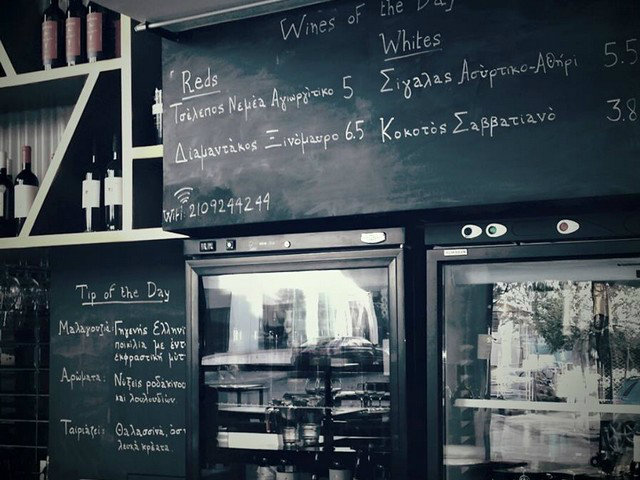 Wines of the Day
Reds
Τσέλεπος Νεμέα Αγιωργίτικο 5
Διαμαντάκος Ξινόμαυρο 6.5
Whites
Σιγάλας Ασύρτικο-Αθήρι 5.5
Κοκοτός Σαββατιανό 3.8
Wifi: 2109244244
Tip of the Day
Μαλαγουζιά: Γηγενής Ελλην
ποικιλία με έντ
εκφραστική μύτ
Αρώματα: Νύξεις ροδάκινο
και λουλουδιών
Ταιριάζει: Θαλασσινά,
λευκά κρέατα.